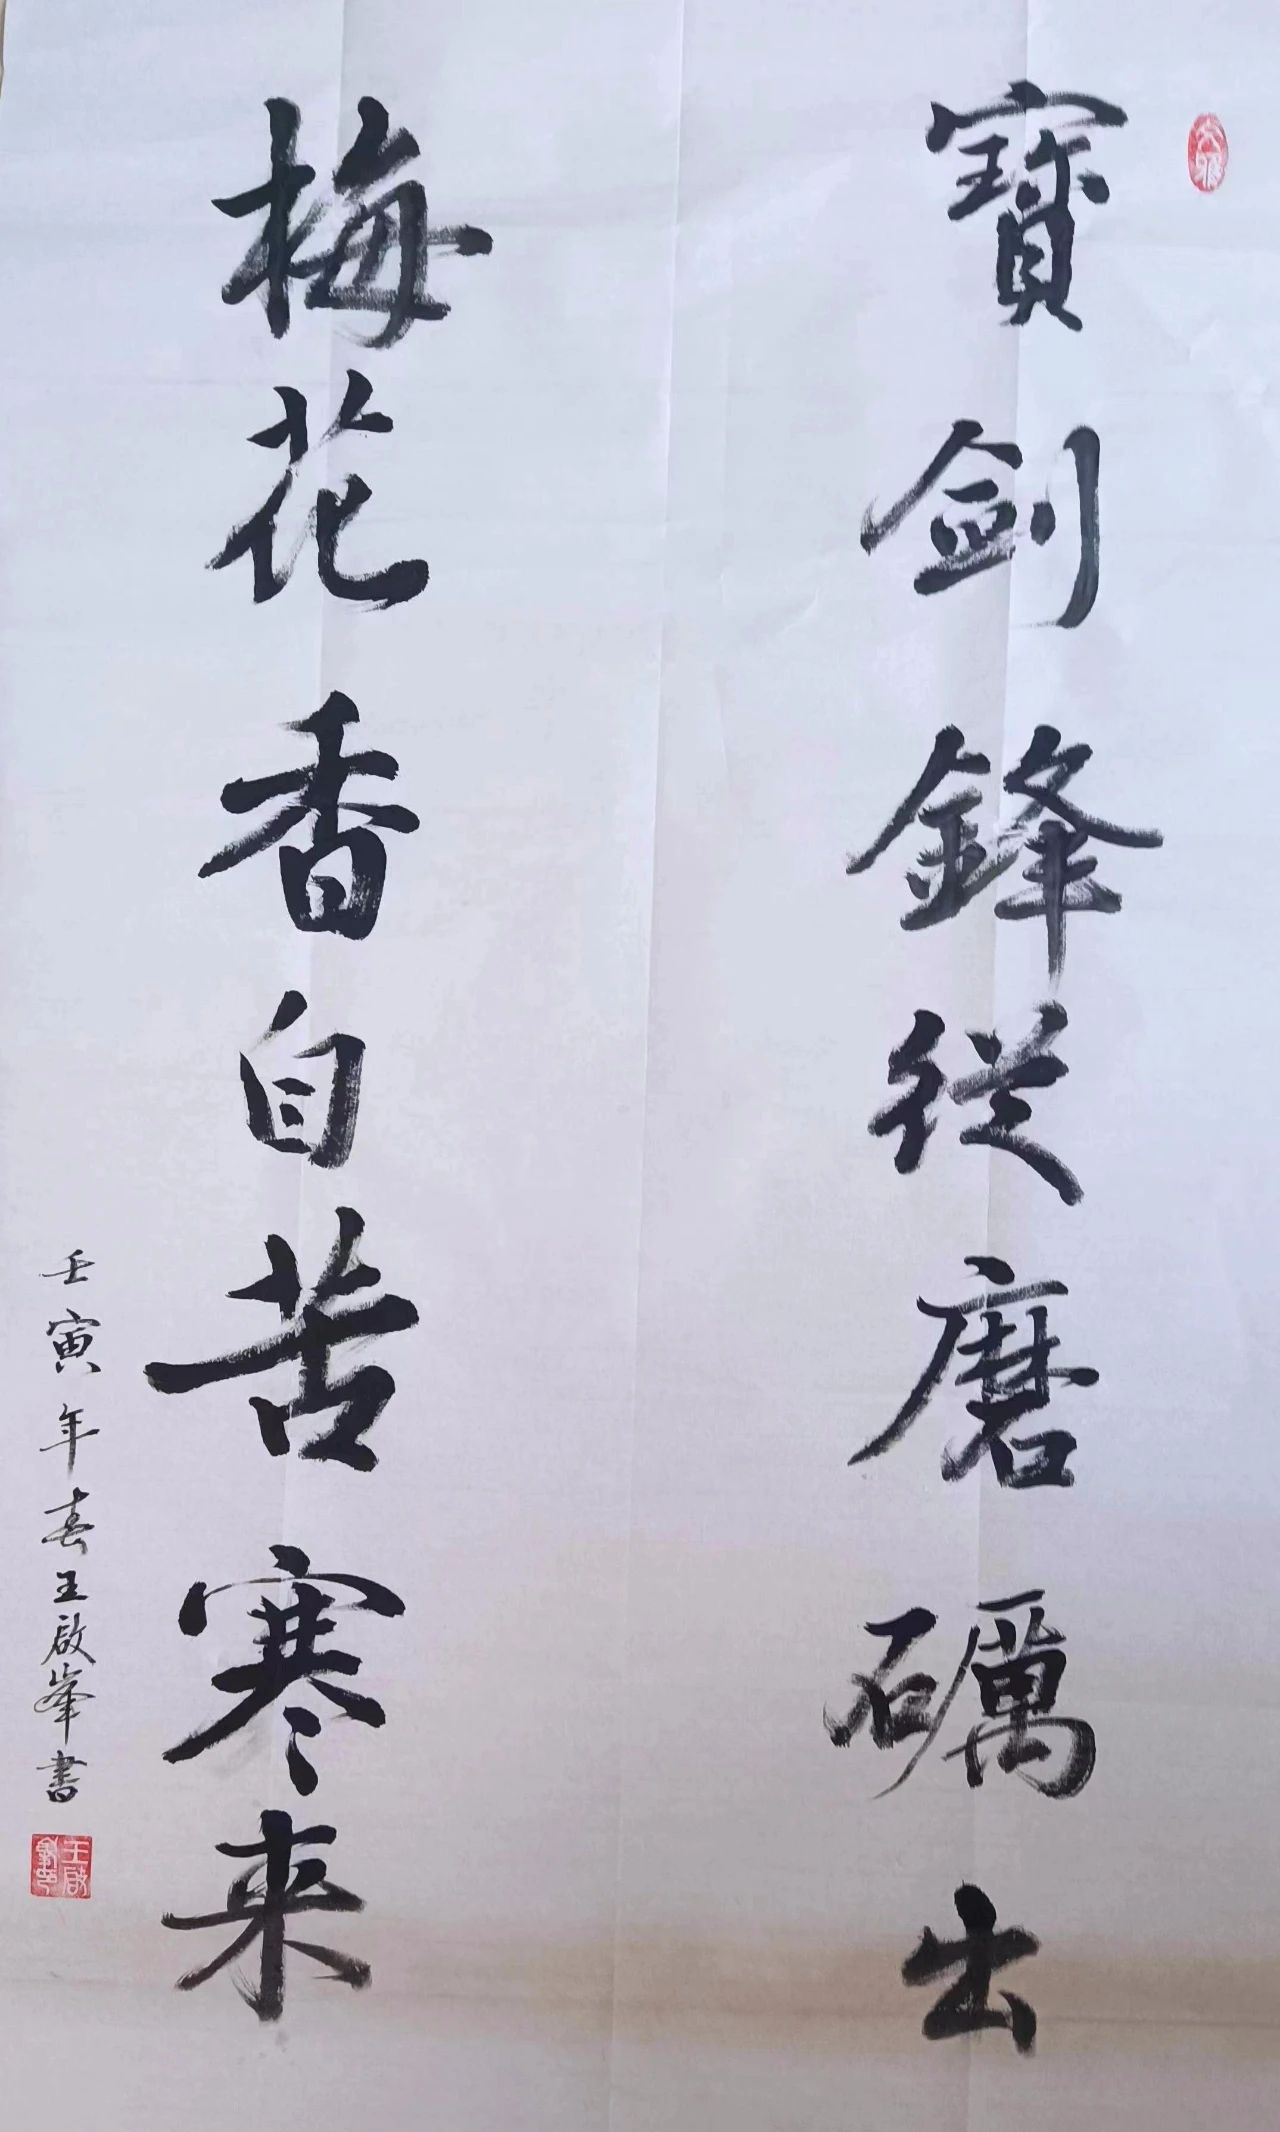 寶劍鋒從磨礪出
梅花香自苦寒来
壬寅年春王啟峯書
王啟峯印